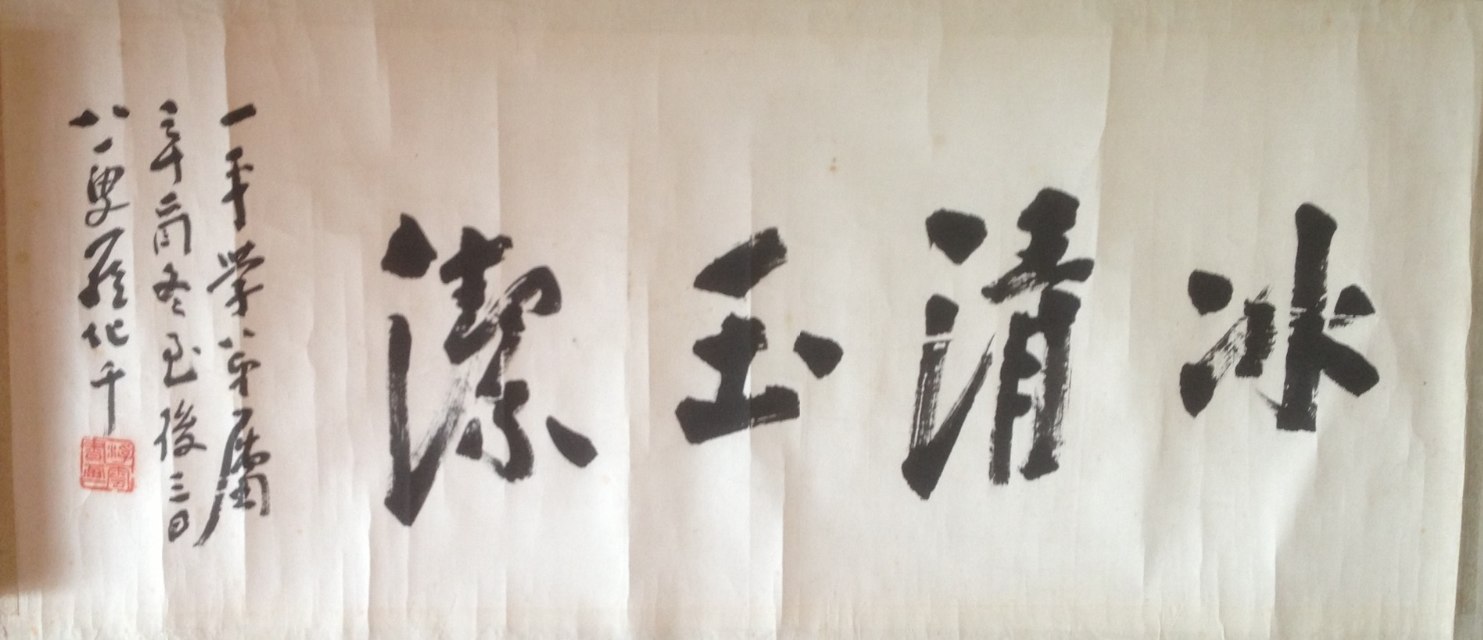 冰清玉潔
一平學弟屬
辛酉冬至後三日
八一叟羅化千